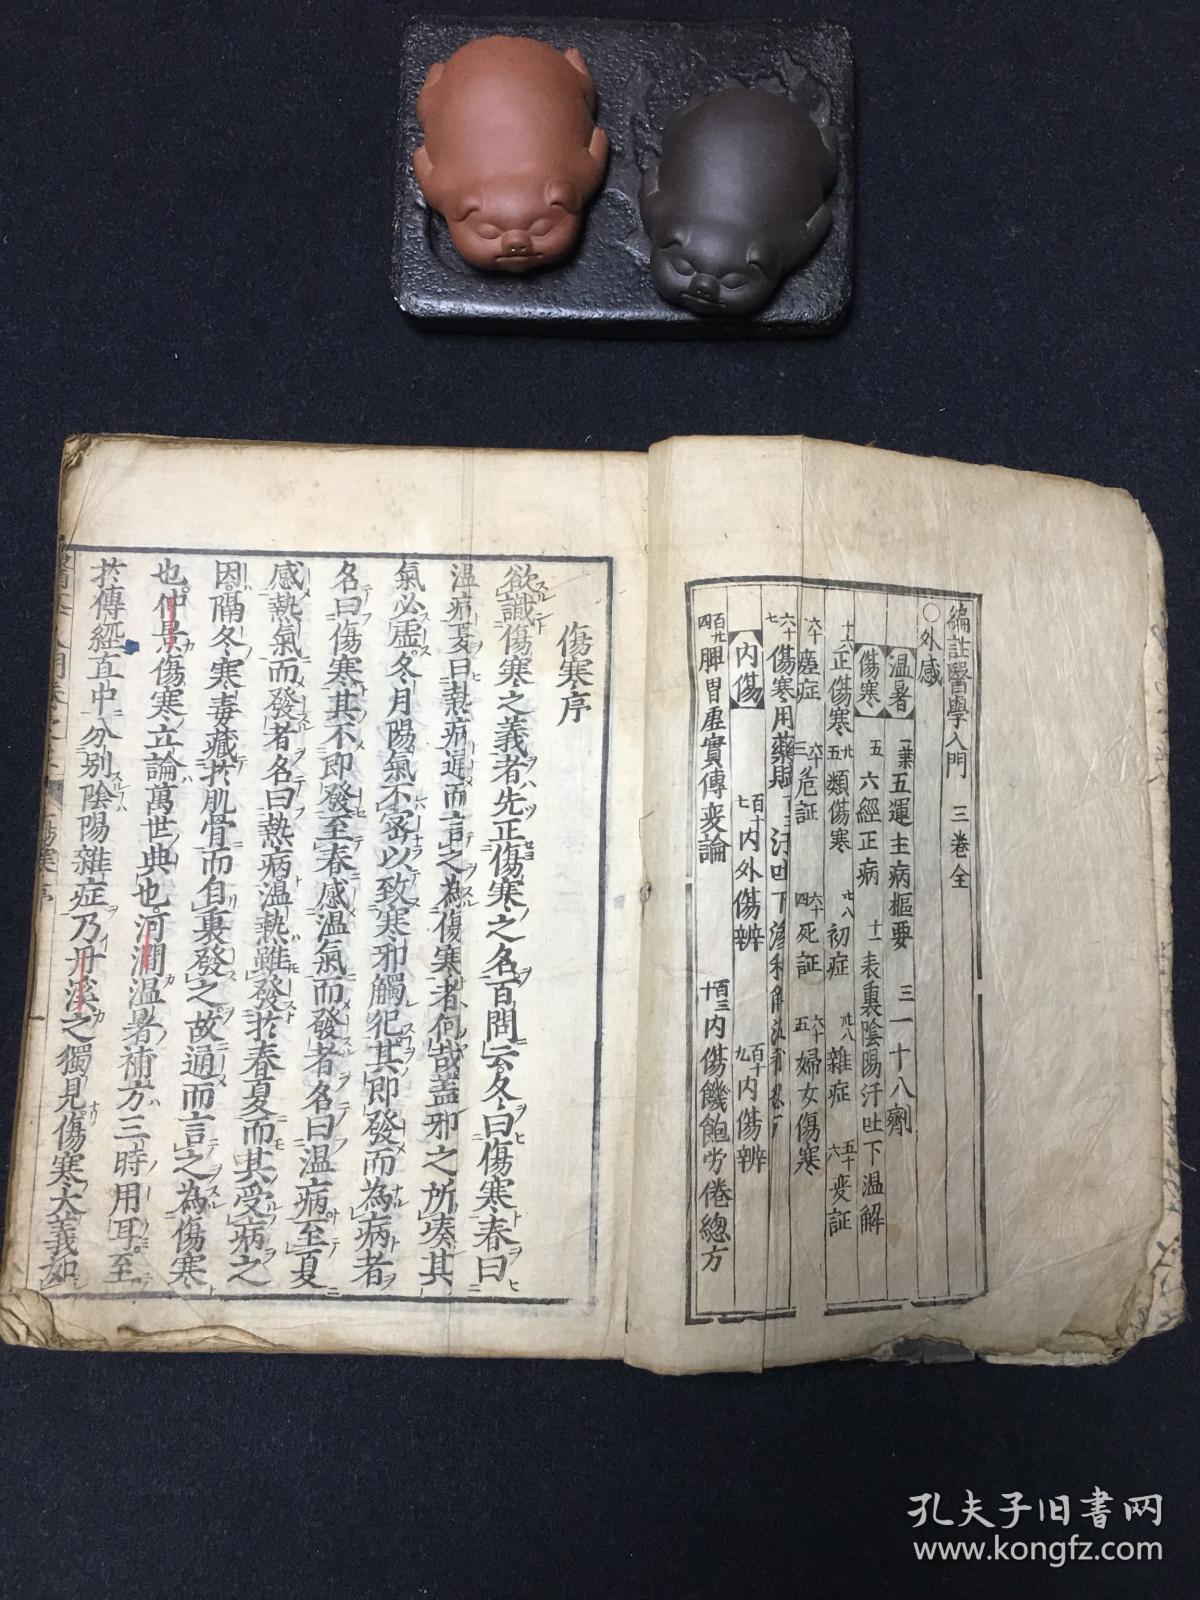 編註醫學入門　三卷全
○外感
溫暑　一葉五運主病樞要　三一十八劑
傷寒　五六經正病　十一表裏陰陽汗吐下溫解
十六正傷寒　廿五類傷寒　廿八初症　卅八雜症　五十六変証
六十瘥症　六十三危証　六十四死証　六十五婦女傷寒
六十七傷寒用藥賦
內傷　百十七內外傷辨　百十九內傷辨
百廿四脾胃虛實傳変論　百三十內傷饑飽労倦總方
傷寒序
欲識傷寒之義者先正傷寒之名百問云冬曰傷寒春曰
溫病夏曰熱病通而言之為傷寒者何哉蓋邪之所湊其
氣必虛冬月陽氣不密以致寒邪觸犯其即發而為病者
名曰傷寒其不即發至春感溫氣而發者名曰溫病至夏
感熱氣而發者名曰熱病溫熱雖發於春夏而其受病之
因隔冬寒毒藏於肌骨而自裏發之故通而言之為傷寒
也仲景傷寒立論萬世典也河澗溫暑補方三時用耳至
於傳經直中分別陰陽雜症乃丹溪之獨見傷寒大義如
孔夫子旧书网
www.kongfz.com